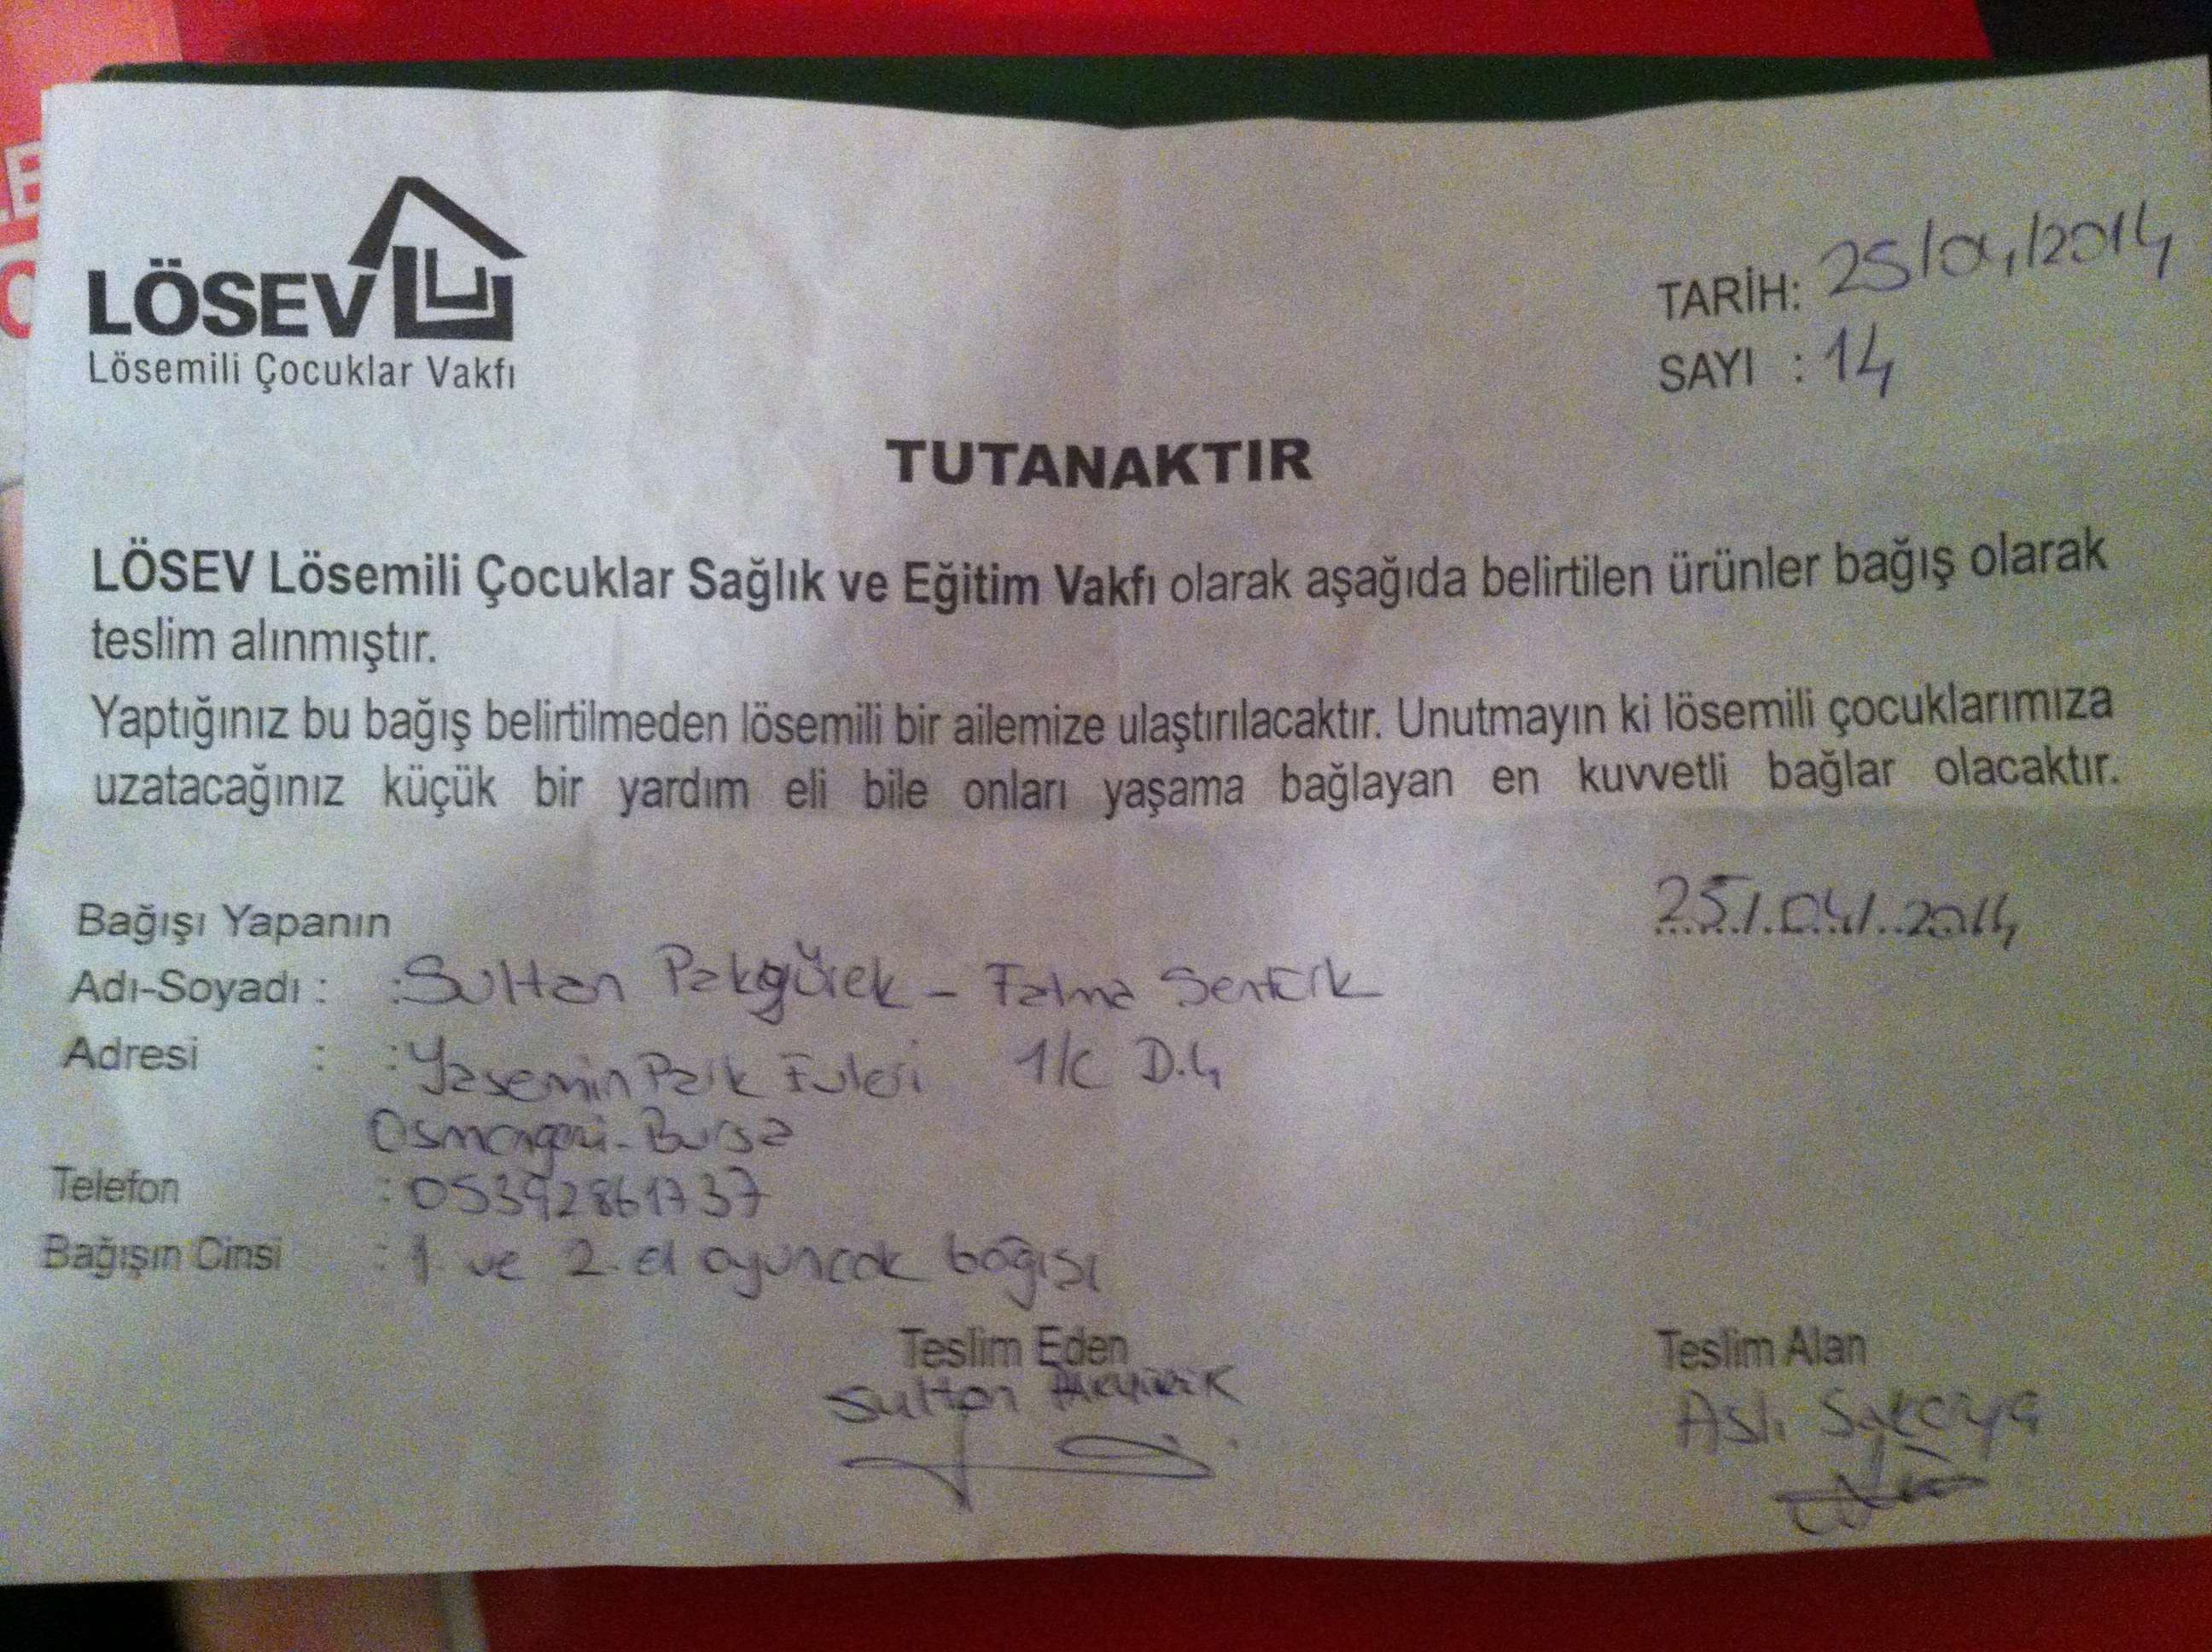 LE
LÖSEV
Lösemili Çocuklar Vakfı
TARİH: 25/04/2014
SAYI : 14
TUTANAKTIR
LÖSEV Lösemili Çocuklar Sağlık ve Eğitim Vakfı olarak aşağıda belirtilen ürünler bağış olarak
teslim alınmıştır.
Yaptığınız bu bağış belirtilmeden lösemili bir ailemize ulaştırılacaktır. Unutmayın ki lösemili çocuklarımıza
uzatacağınız küçük bir yardım eli bile onları yaşama bağlayan en kuvvetli bağlar olacaktır.
25/04/2014
Bağışı Yapanın
Adı-Soyadı : : Sultan Pakyürek - Fatma Sentürk
Adresi : : Yasemin Park Evleri 1/C D.4
Osmangazi-Bursa
Telefon : 05392861737
Bağışın Cinsi : 1. ve 2. el oyuncak bağışı
Teslim Eden
Teslim Alan
Sultan PAKYÜREK
Aslı Sakarya